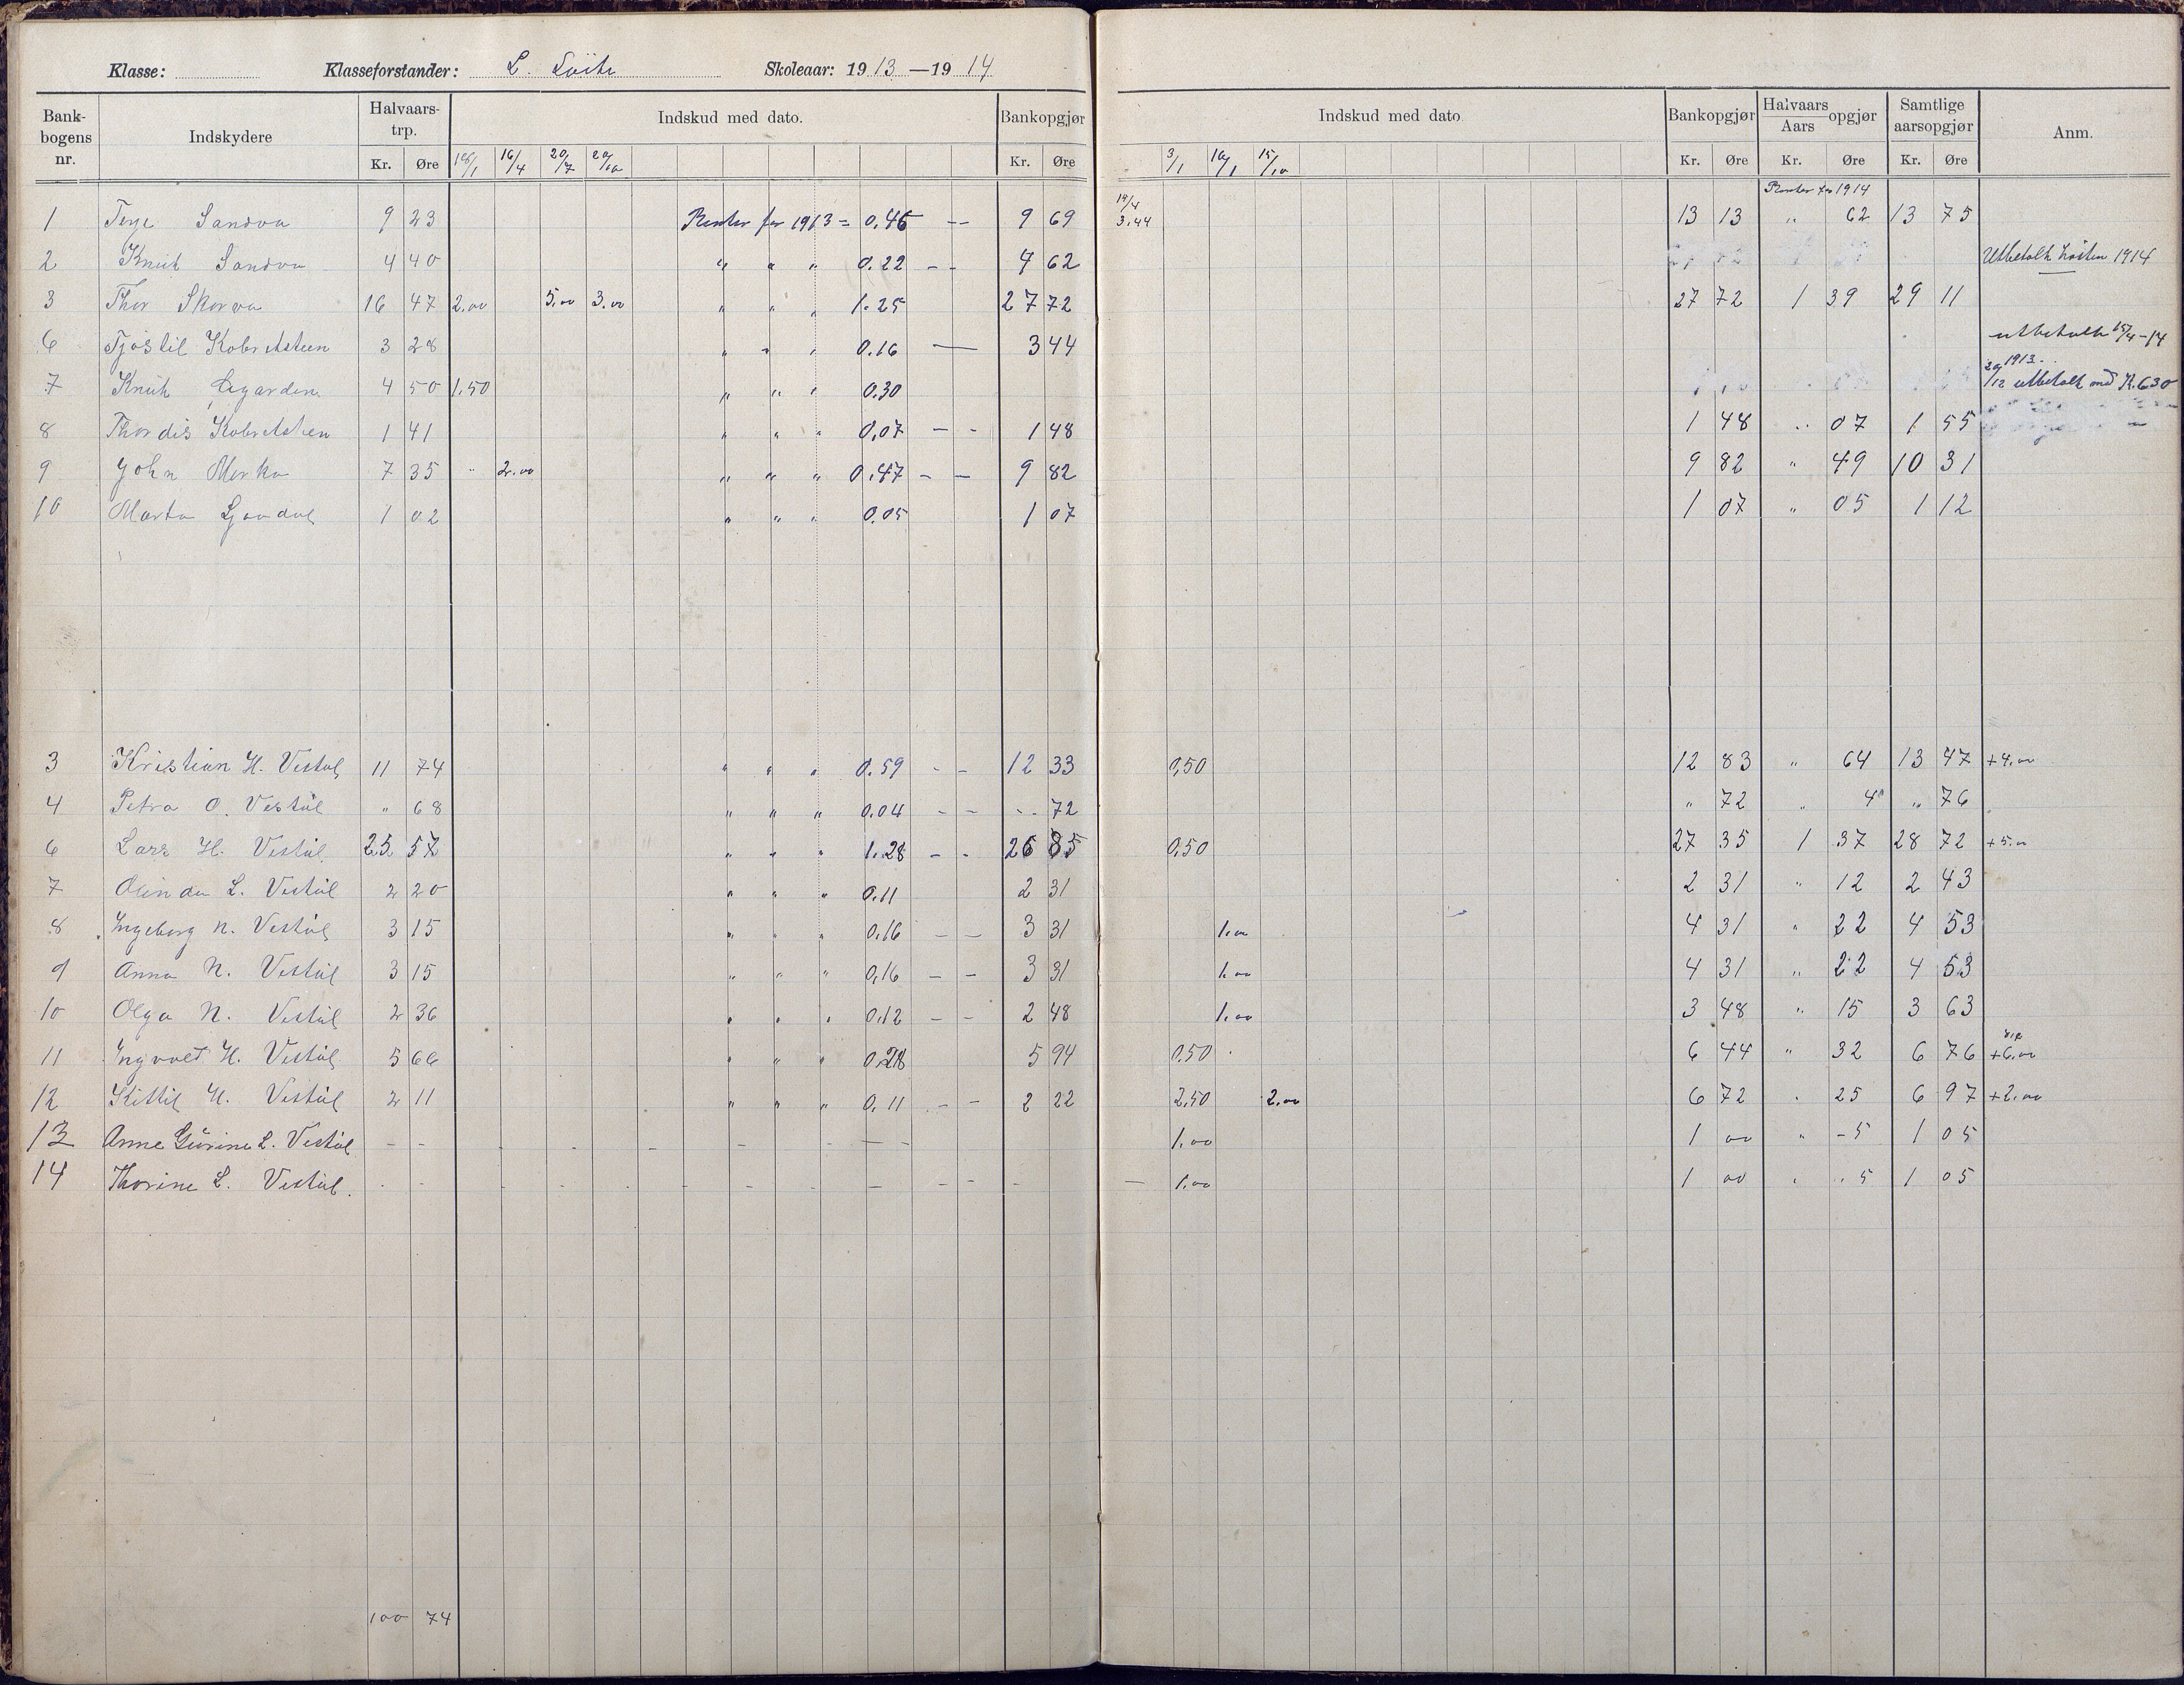 Klasse: Klasseforstander: L. Skoleaar: 1913—1914
Bankbogens nr. Indskydere Halvaarstrp. Kr. Øre Indskud med dato. 16/4 20/7 Bankopgjør Kr. Øre Indskud med dato 3/1 10/1 15/10 Bankopgjør Kr. Øre Halvaars Aars opgjør Kr. Øre Samtlige aarsopgjør Kr. Øre Anm.
Renter for 1914
1 Terje Sandvn 9 23 Renter for 1913 = 0.46 -- 9 69 14/4 3.44 13 13 " 62 13 75
2 Knut Sandvn 4 40 " " " 0.22 -- 4 62 Utbetalt høsten 1914
3 Thor Skorvn 16 47 2.00 5.00 3.00 " " " 1.25 27 72 27 72 1 39 29 11
6 Tjøstil Kobretsteen 3 28 " " " 0.16 — 3 44 utbetalt 15/4-14
7 Knut 4 50 1.50 " " " 0.30 1913 29/12 utbetalt med K. 6.30
8 Thordis Kobretsteen 1 41 " " " 0.07 - - 1 48 1 48 " 07 1 55
9 John Morka 7 35 " 2.00 " " " 0.47 - - 9 82 9 82 " 49 10 31
10 Marta 1 02 " " " 0.05 1 07 1 07 " 05 1 12
3 Kristian H. Vestøl 11 74 " " " 0.59 - - 12 33 0,50 12 83 " 64 13 47 +4.00
4 Petra O. Vestøl " 68 " " " 0.04 - - " 72 " 72 " 4 " 76
6 Lars H. Vestøl 25 57 " " " 1.28 - - 26 85 0,50 27 35 1 37 28 72 +5.00
7 Olinda L. Vestøl 2 20 " " " 0.11 2 31 2 31 " 12 2 43
8 Ingeborg N. Vestøl 3 15 " " " 0.16 - - 3 31 1.00 4 31 " 22 4 53
9 Anna N. Vestøl 3 15 " " " 0.16 - - 3 31 1.00 4 31 " 22 4 53
10 Olga N. Vestøl 2 36 " " " 0.12 - - 2 48 1.00 3 48 " 15 3 63
11 Ingvald H. Vestøl 5 66 " " " 0.28 5 94 0.50 6 44 " 32 6 76 +6.00
12 Kittil H. Vestøl 2 11 " " " 0.11 - - 2 22 2.50 2.00 6 72 " 25 6 97 +2.00
13 Anne Gurine L. Vestøl - - - - - - - - - 1.00 1 00 " - 5 1 05
14 Thorine L. Vestøl. - - - - - - - - - - - - 1.00 1 00 " " 5 1 05
100 74